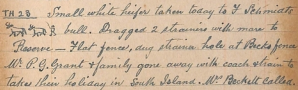 TH 28 Small white heifer taken today to F. Schmidts
bull. Dragged 2 strainers with mare to
Reserve — Flat fence, dug strainer hole at Becks fence
Mr P. G. Grant & family gone away with coach & team to
take their holiday in South Island. Mr Beckett called.